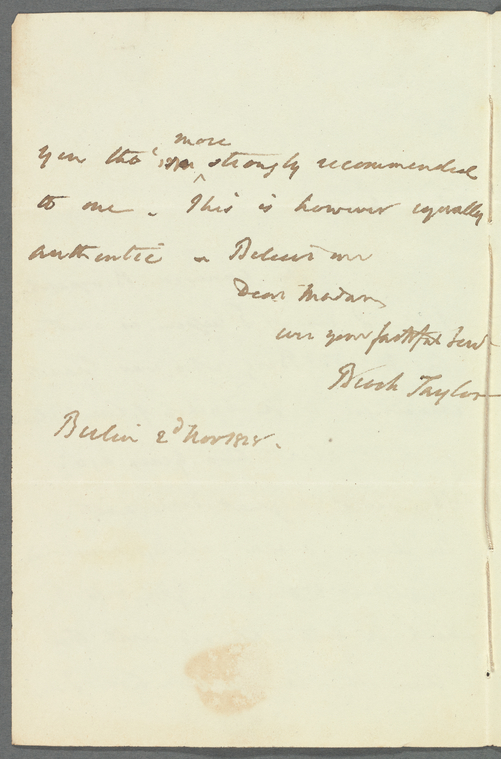 you tho' more strongly recommended
to me. This is however equally
authentic — Believe me
Dear Madam
ever your faithful Servt
Brook Taylor
Berlin 2d Nov 1828.